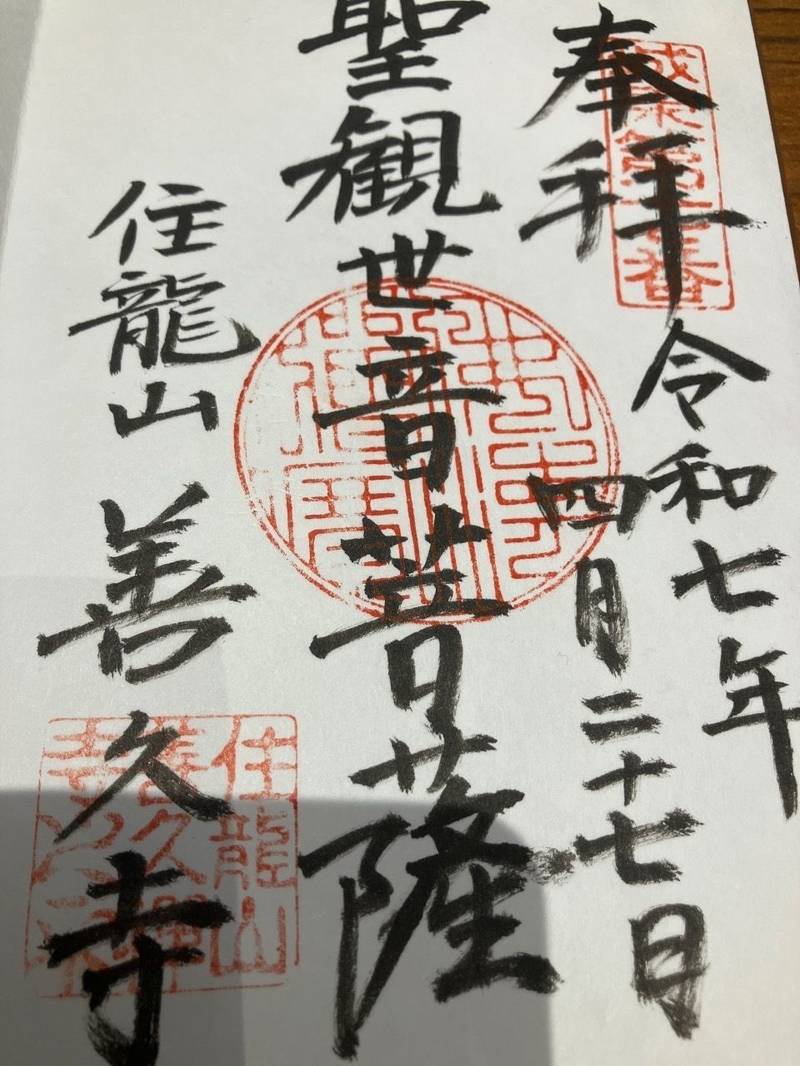 奉拝
令和七年
四月二十七日
聖観世音菩薩
住龍山
善久寺
住龍山
善久禅